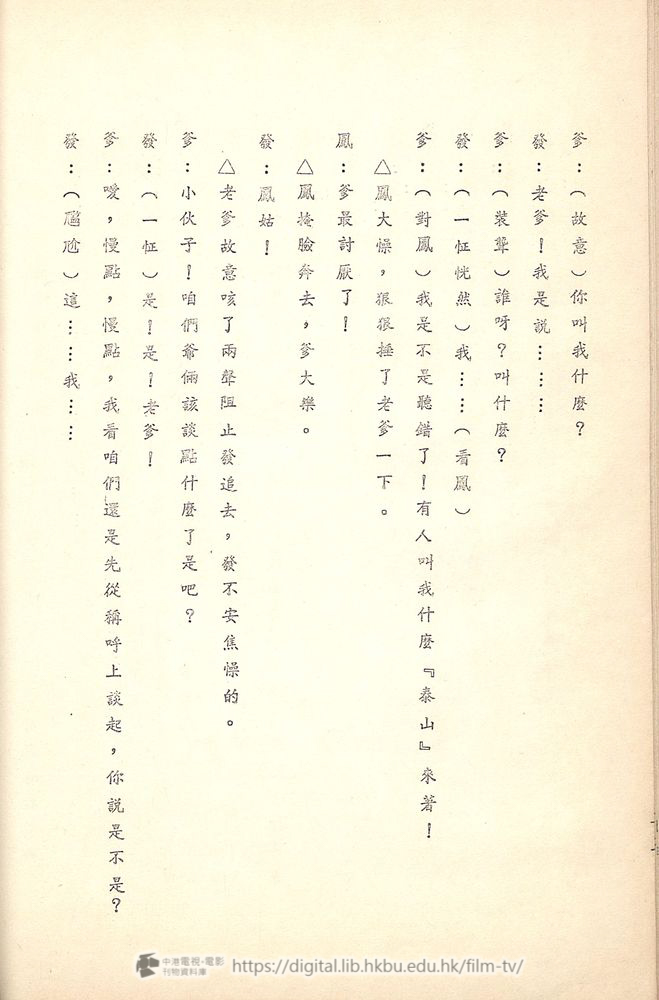 爹：（故意）你叫我什麼？
發：老爹！我是説………
爹：（裝聾）誰呀？叫什麼？
發：（一怔恍然）我……（看鳳）
爹：（對鳳）我是不是聽錯了！有人叫我什麼『泰山』來著！
△鳳大懆，狠狠捶了老爹一下。
鳳：爹最討厭了！
△鳳掩臉奔去，爹大樂。
發：鳳姑！
△老爹故意咳了兩聲阻止發追去，發不安焦懆的。
爹：小伙子！咱們爺倆該談點什麼了是吧？
發：（一怔）是！是！老爹！
爹：噯，慢點，慢點，我看咱們還是先從稱呼上談起，你説是不是？
發：（尷尬）這……我……
中港電視·電影
刊物資料庫
https://digital.lib.hkbu.edu.hk/film-tv/